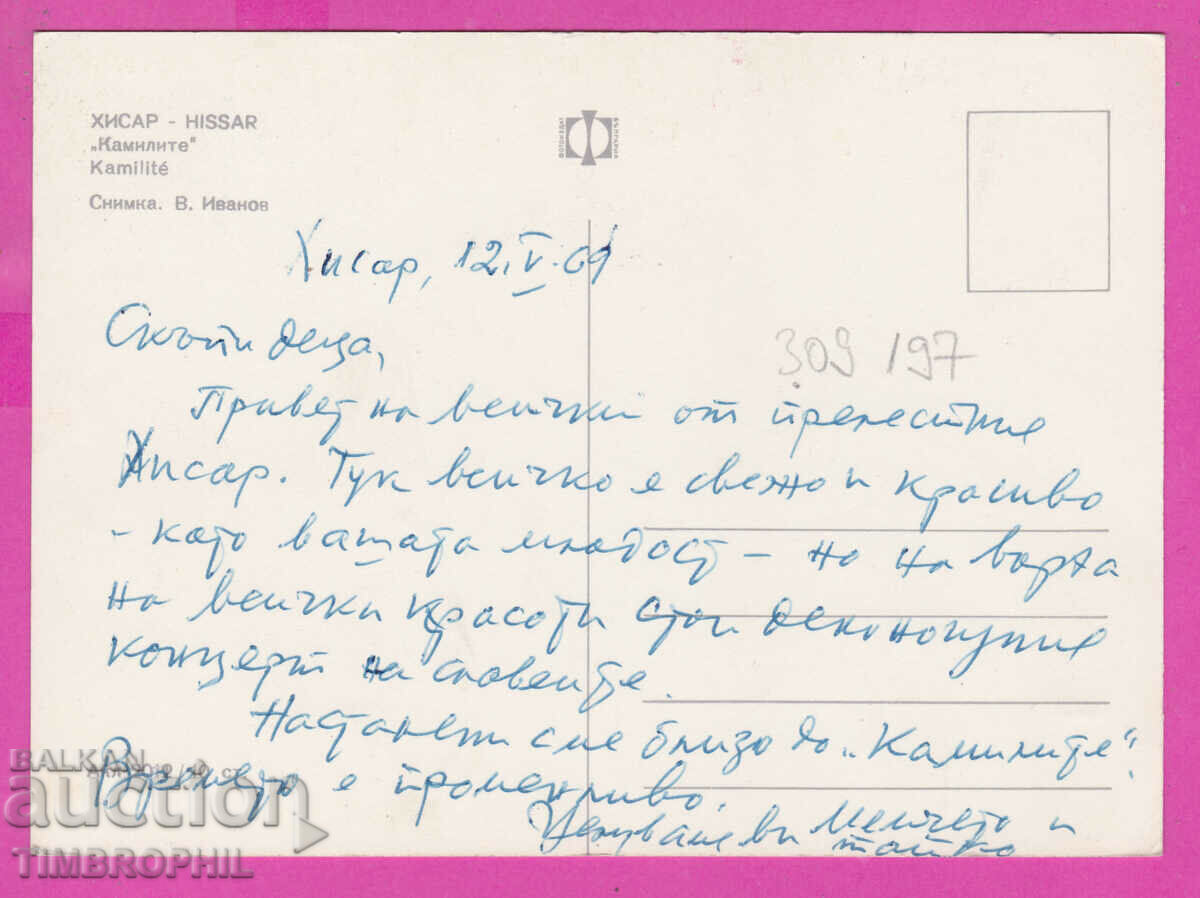 ХИСАР - HISSAR
„Камилите"
Kamilité
Снимка. В. Иванов
ФОТОИЗДАТ БЪЛГАРИЯ
Хисар, 12.V.69
309 197
Скъпи деца,
Привет на всички от прелестния
Хисар. Тук всичко е свежо и красиво
- като вашата младост - но на върха
на всички красоти стои денонощния
концерт на славеите.
Настанени сме близо до „Камилите".
Времето е променливо.
Целуваме ви Мечето и
татко
BALKAN
auction
TIMBROPHIL